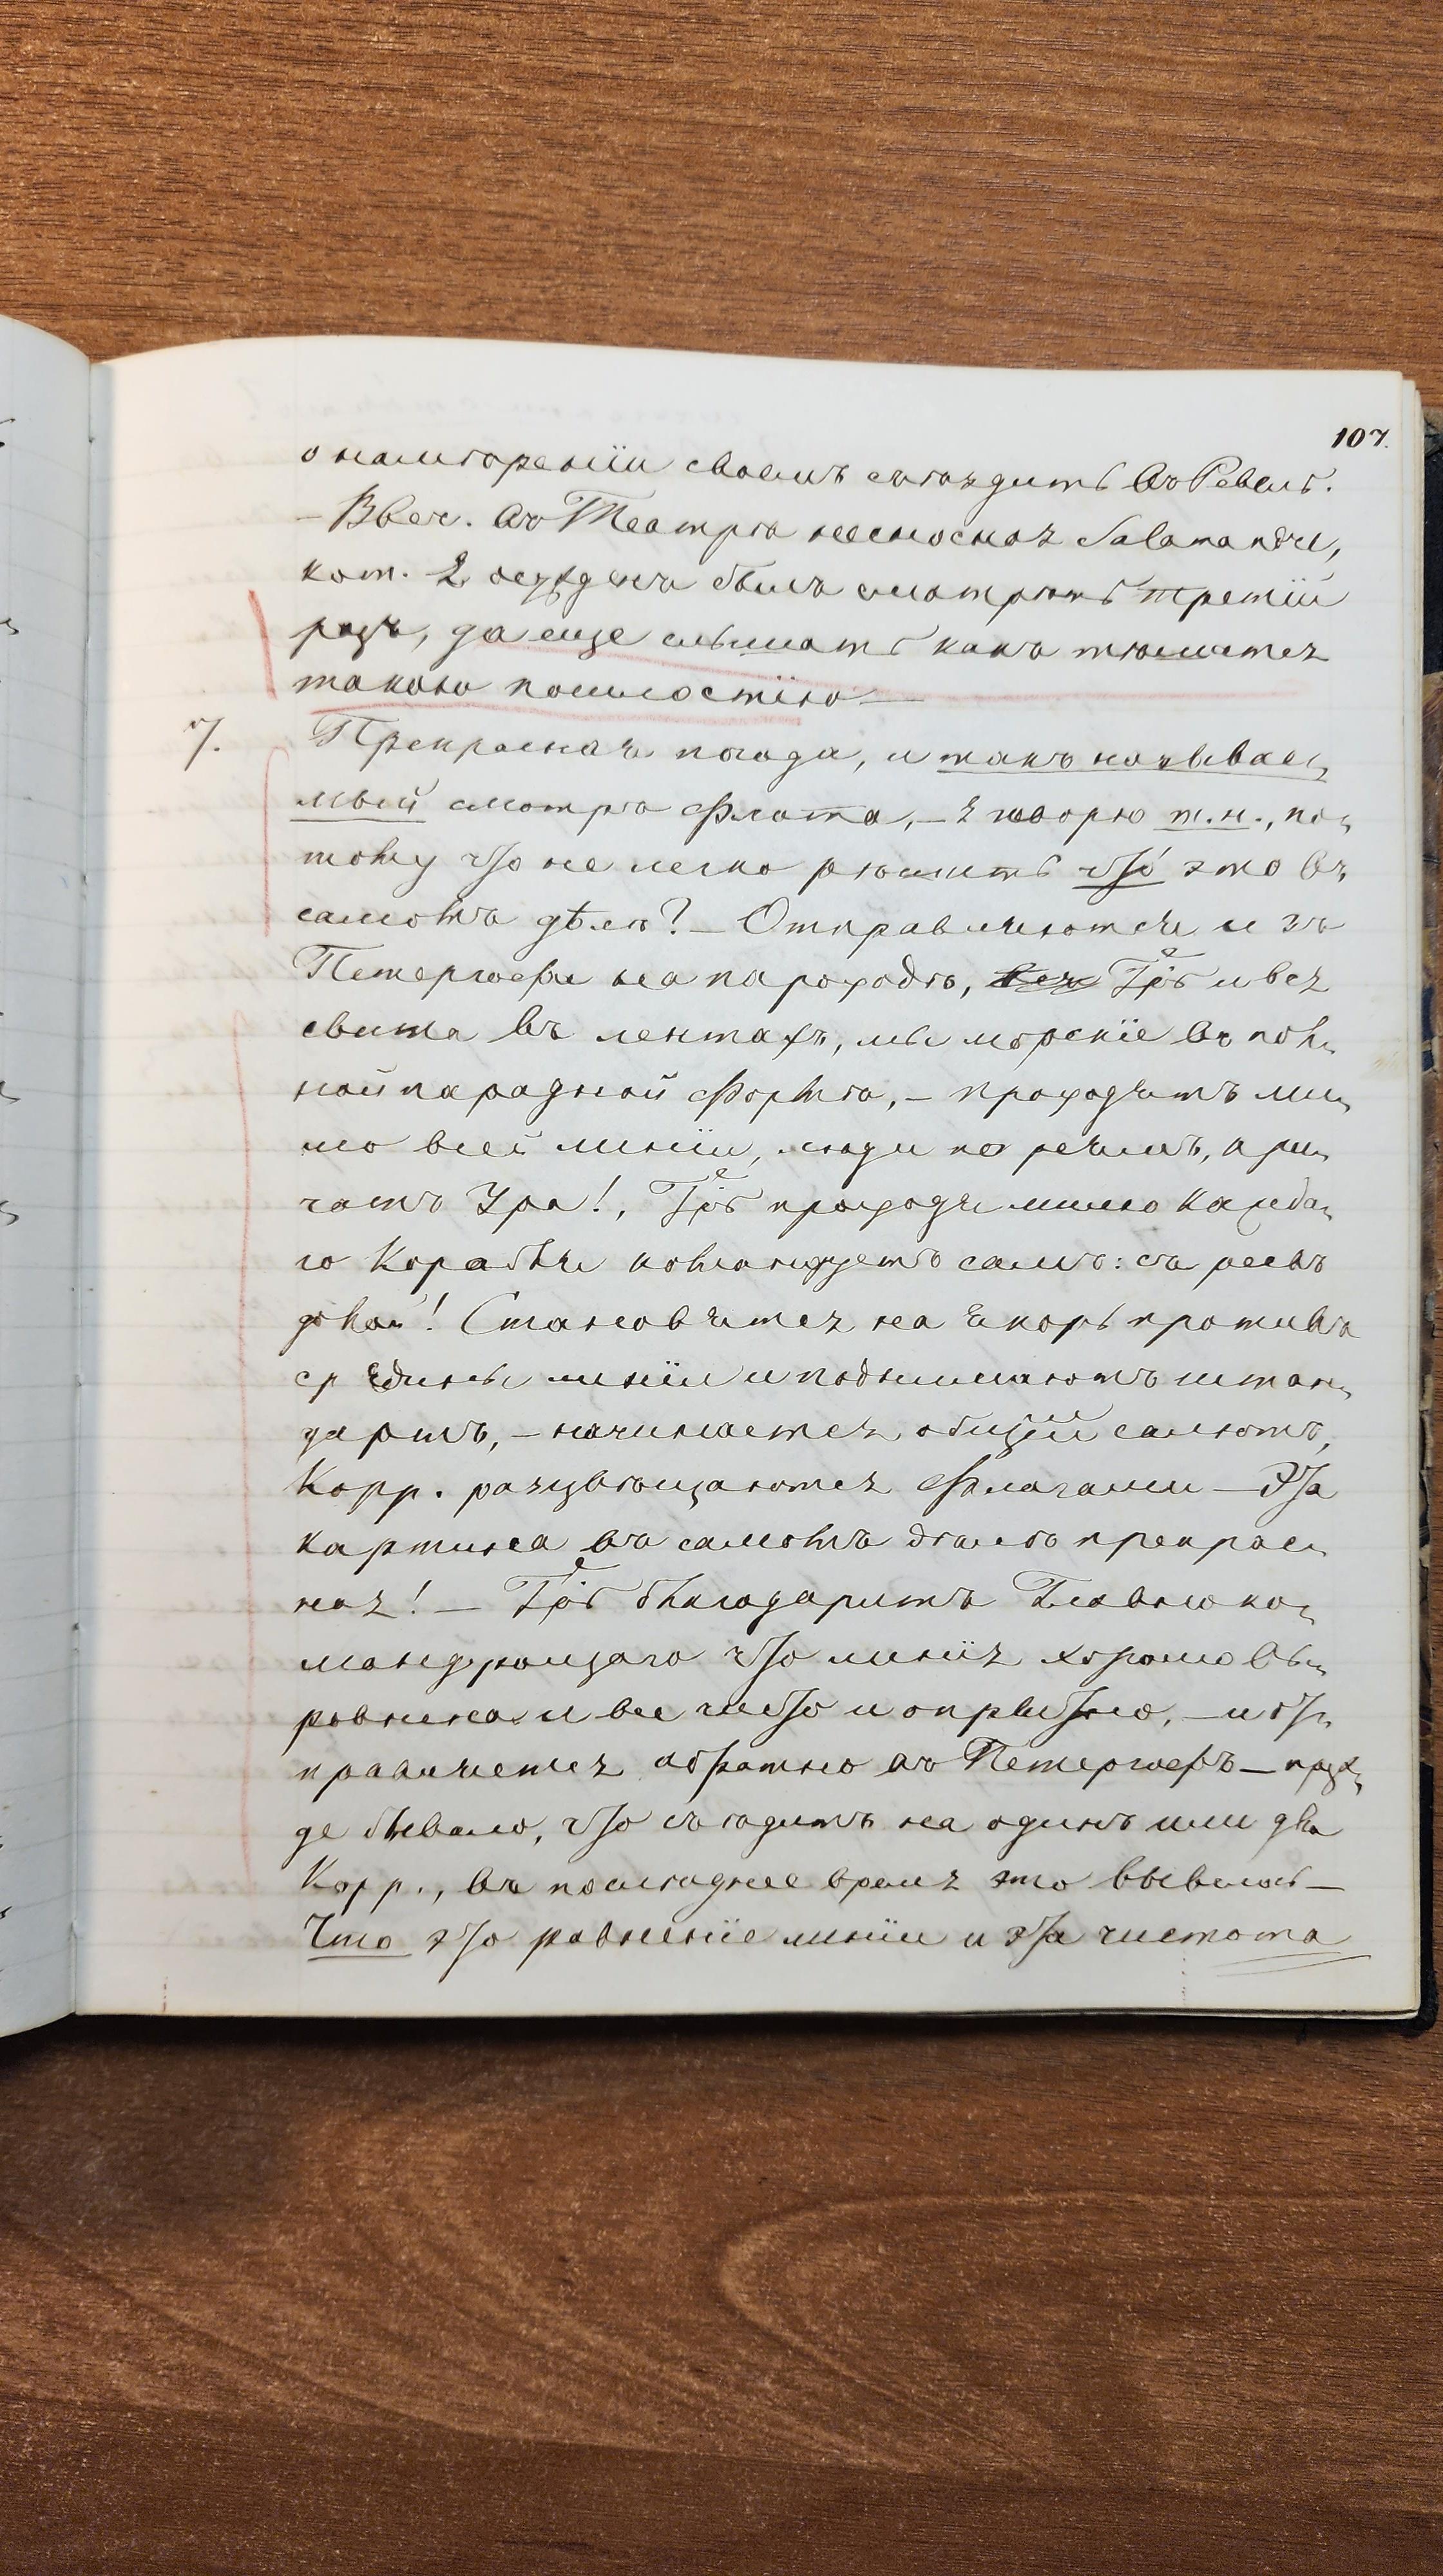 107.
о намѣреніи своемъ съѣздить въ Ревель.
– Ввеч. въ Театрѣ несносная Salamandre,
кот. я осужденъ былъ смотрѣть третій
разъ, да еще слышать какъ тѣшатся
такою пошлостію —
7. Прекрасная погода, и такъ называе-
мый смотръ Флота, – я говорю т.н., по-
тому что не легко рѣшить что́ это въ
самомъ дѣлѣ? – Отправляются изъ
Петергофа на пароходѣ, вся Гоь е и вся
свита въ лентахъ, мы морскіе въ пол-
ной парадной формѣ, – проходятъ ми-
мо всей линіи, люди по реямъ, кри-
чатъ Ура!, Гоь е проходя мимо каждa-
го Корабля командуетъ самъ: съ реевъ
долой! Становятся на якорь противъ
средины линіи и поднимаютъ штан-
дартъ, – начинается общій салютъ,
Корр. разцвѣщаются Флагами – Эта
картина въ самомъ дѣлѣ прекрас-
ная! – Гоь е благодаритъ Главноко-
мандующаго что линія хорошо вы-
ровнена и все чисто и опрятно, – и от-
правляется обратно въ Петергофъ – преж-
де бывало, что съѣздитъ на одинъ или два
Корр., въ послѣднее время это вывелось –
Что это равненіе линіи и эта чистота